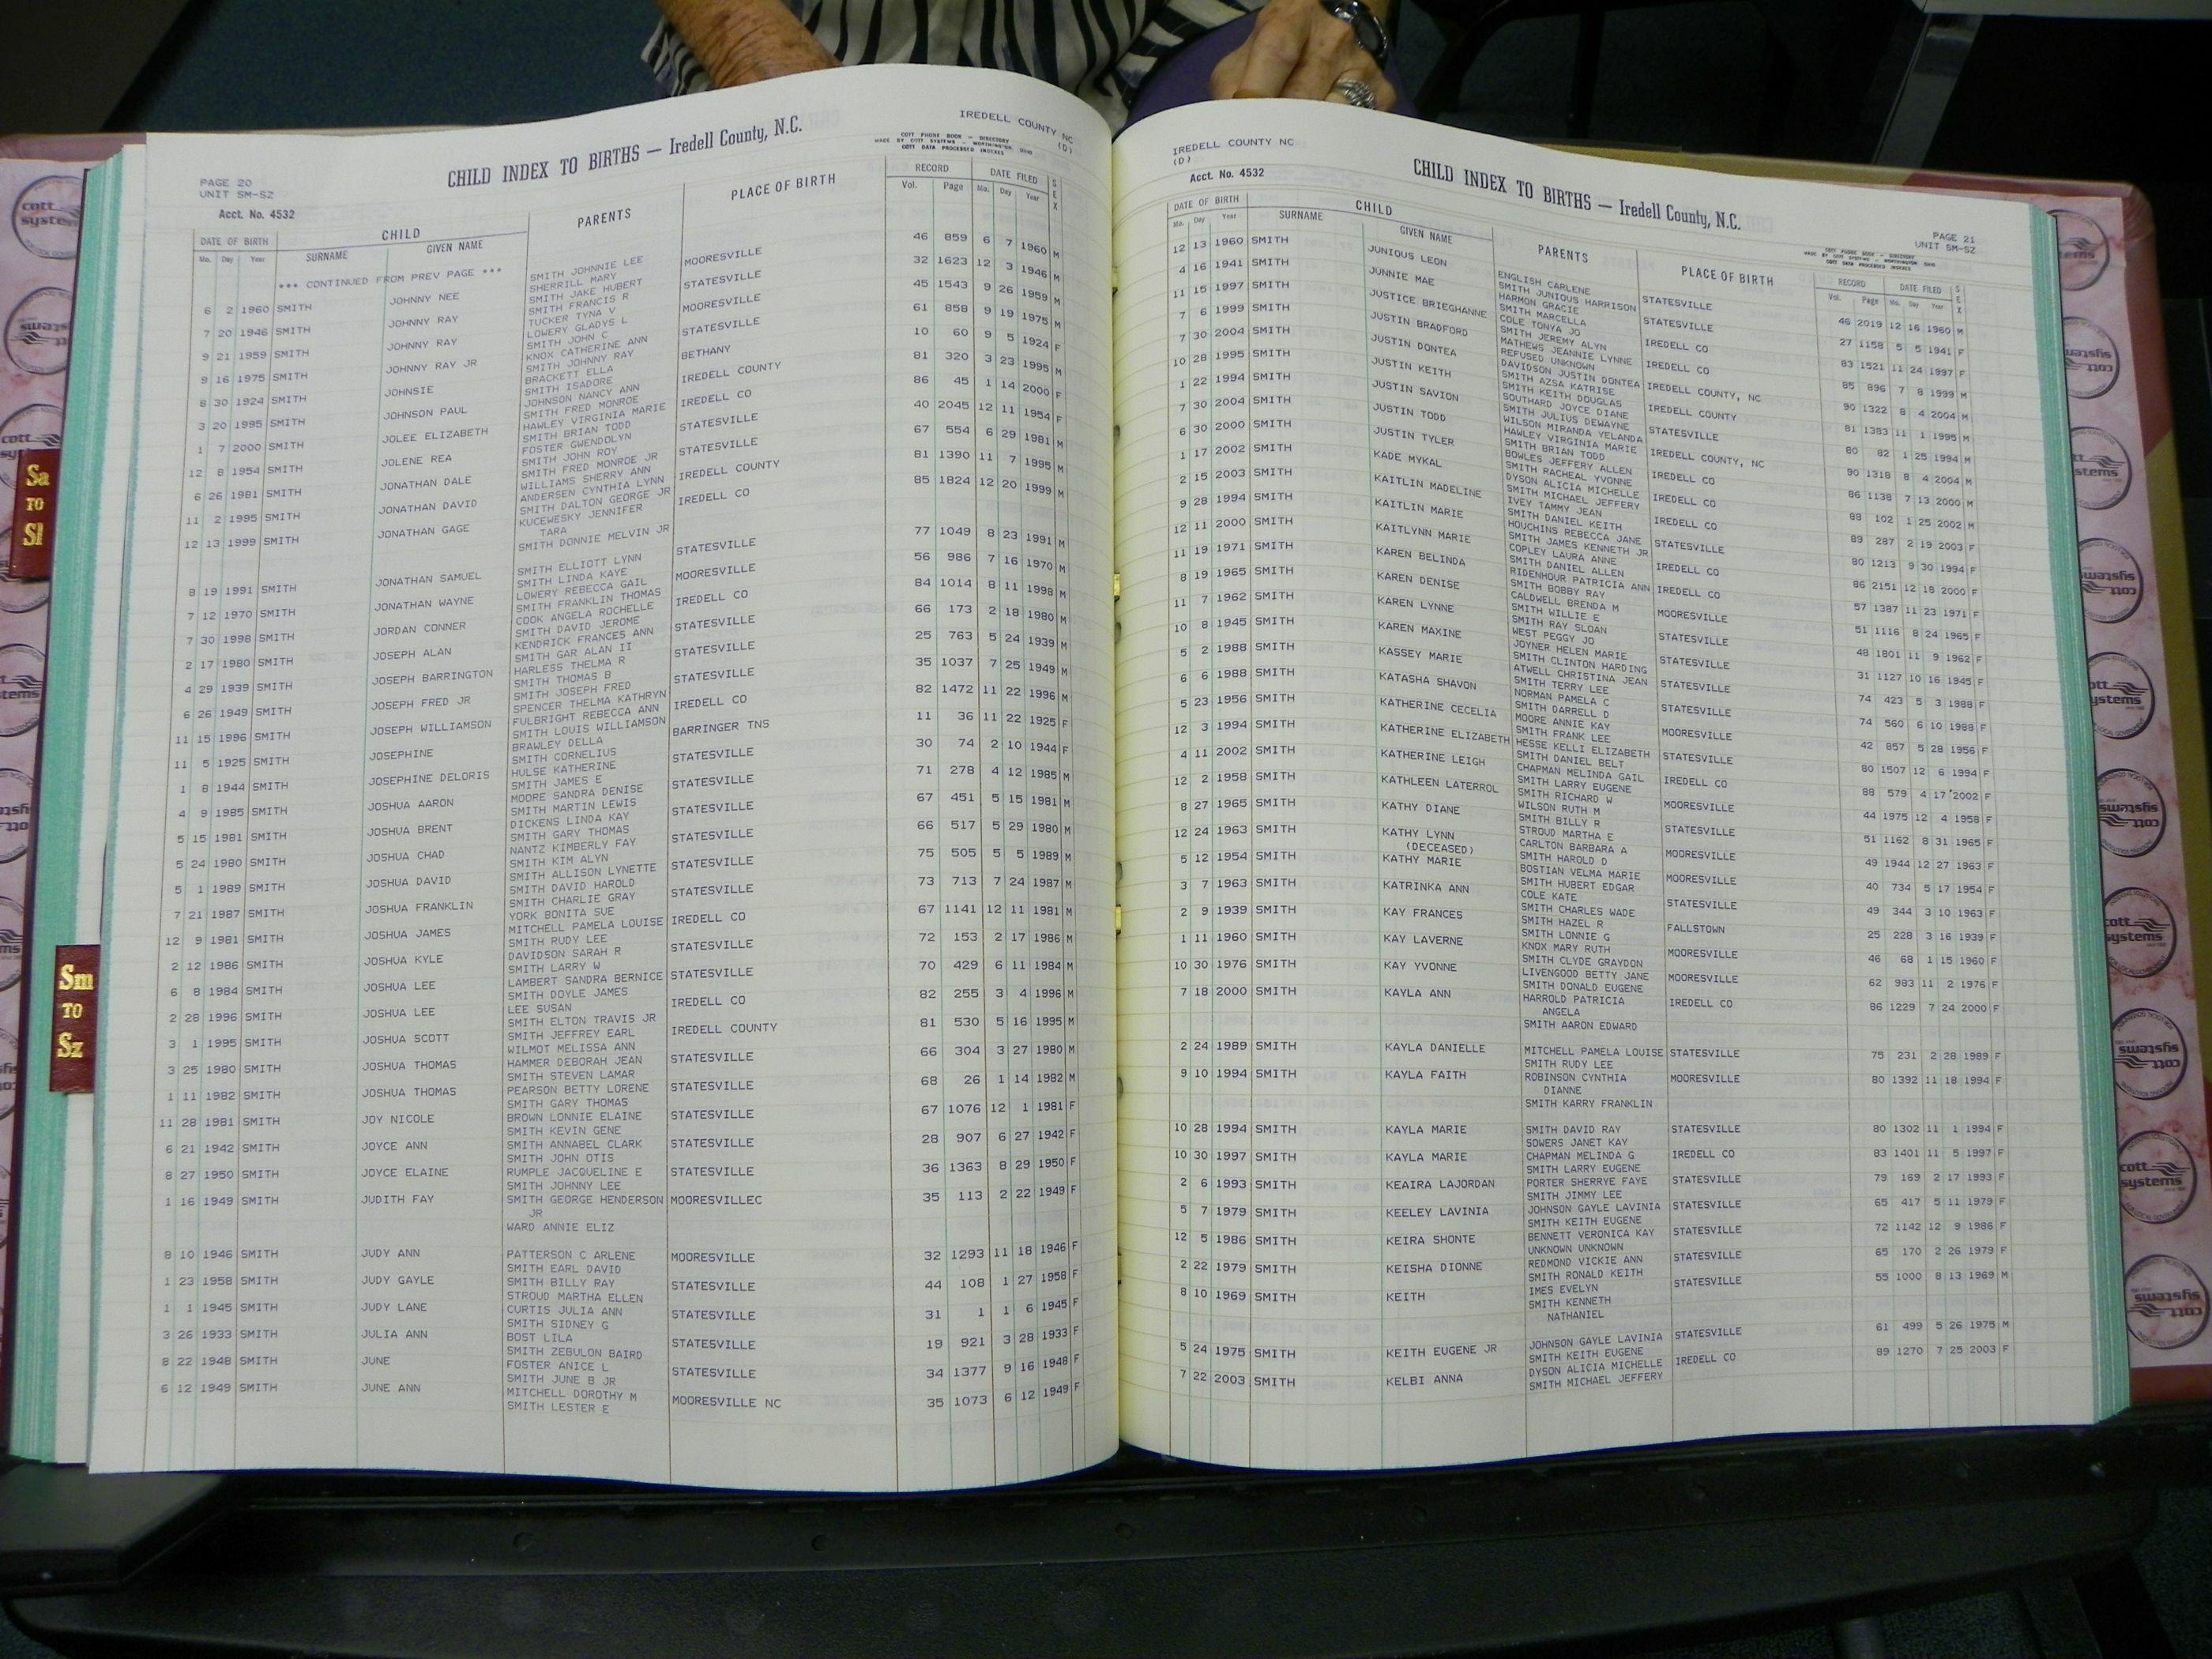 IREDELL COUNTY NC
(D)
CHILD INDEX TO BIRTHS — Iredell County, N.C.
COTT PHONE BOOK — DIRECTORY
MADE BY COTT SYSTEMS — WORTHINGTON, OHIO
COTT DATA PROCESSED INDEXES
PAGE 20
UNIT SM-SZ
Acct. No. 4532
DATE OF BIRTH CHILD PARENTS PLACE OF BIRTH RECORD DATE FILED SEX
Mo. Day Year SURNAME GIVEN NAME Vol. Page Mo. Day Year
*** CONTINUED FROM PREV PAGE ***
6 2 1960 SMITH JOHNNY NEE SMITH JOHNNIE LEE MOORESVILLE 46 859 6 7 1960 M
SHERRILL MARY
7 20 1946 SMITH JOHNNY RAY SMITH JAKE HUBERT STATESVILLE 32 1623 12 3 1946 M
SMITH FRANCIS R
9 21 1959 SMITH JOHNNY RAY TUCKER TYNA V MOORESVILLE 45 1543 9 26 1959 M
LOWERY GLADYS L
SMITH JOHN C
9 16 1975 SMITH JOHNNY RAY JR KNOX CATHERINE ANN STATESVILLE 61 858 9 19 1975 M
SMITH JOHNNY RAY
8 30 1924 SMITH JOHNSIE BRACKETT ELLA BETHANY 10 60 9 5 1924 F
SMITH ISADORE
3 20 1995 SMITH JOHNSON PAUL JOHNSON NANCY ANN IREDELL COUNTY 81 320 3 23 1995 M
SMITH FRED MONROE
1 7 2000 SMITH JOLEE ELIZABETH HAWLEY VIRGINIA MARIE IREDELL CO 86 45 1 14 2000 F
SMITH BRIAN TODD
12 8 1954 SMITH JOLENE REA FOSTER GWENDOLYN STATESVILLE 40 2045 12 11 1954 F
SMITH JOHN ROY
6 26 1981 SMITH JONATHAN DALE SMITH FRED MONROE JR STATESVILLE 67 554 6 29 1981 M
WILLIAMS SHERRY ANN
11 2 1995 SMITH JONATHAN DAVID ANDERSEN CYNTHIA LYNN IREDELL COUNTY 81 1390 11 7 1995 M
SMITH DALTON GEORGE JR
12 13 1999 SMITH JONATHAN GAGE KUCEWESKY JENNIFER IREDELL CO 85 1824 12 20 1999 M
TARA
SMITH DONNIE MELVIN JR
8 19 1991 SMITH JONATHAN SAMUEL SMITH ELLIOTT LYNN STATESVILLE 77 1049 8 23 1991 M
SMITH LINDA KAYE
7 12 1970 SMITH JONATHAN WAYNE LOWERY REBECCA GAIL MOORESVILLE 56 986 7 16 1970 M
SMITH FRANKLIN THOMAS
7 30 1998 SMITH JORDAN CONNER COOK ANGELA ROCHELLE IREDELL CO 84 1014 8 11 1998 M
SMITH DAVID JEROME
2 17 1980 SMITH JOSEPH ALAN KENDRICK FRANCES ANN STATESVILLE 66 173 2 18 1980 M
SMITH GAR ALAN II
4 29 1939 SMITH JOSEPH BARRINGTON HARLESS THELMA R STATESVILLE 25 763 5 24 1939 M
SMITH THOMAS B
6 26 1949 SMITH JOSEPH FRED JR SMITH JOSEPH FRED STATESVILLE 35 1037 7 25 1949 M
SPENCER THELMA KATHRYN
11 15 1996 SMITH JOSEPH WILLIAMSON FULBRIGHT REBECCA ANN IREDELL CO 82 1472 11 22 1996 M
SMITH LOUIS WILLIAMSON
11 5 1925 SMITH JOSEPHINE BRAWLEY DELLA BARRINGER TNS 11 36 11 22 1925 F
SMITH CORNELIUS
1 8 1944 SMITH JOSEPHINE DELORIS HULSE KATHERINE STATESVILLE 30 74 2 10 1944 F
SMITH JAMES E
4 9 1985 SMITH JOSHUA AARON MOORE SANDRA DENISE STATESVILLE 71 278 4 12 1985 M
SMITH MARTIN LEWIS
5 15 1981 SMITH JOSHUA BRENT DICKENS LINDA KAY STATESVILLE 67 451 5 15 1981 M
SMITH GARY THOMAS
5 24 1980 SMITH JOSHUA CHAD NANTZ KIMBERLY FAY STATESVILLE 66 517 5 29 1980 M
SMITH KIM ALYN
5 1 1989 SMITH JOSHUA DAVID SMITH ALLISON LYNETTE STATESVILLE 75 505 5 5 1989 M
SMITH DAVID HAROLD
7 21 1987 SMITH JOSHUA FRANKLIN SMITH CHARLIE GRAY STATESVILLE 73 713 7 24 1987 M
YORK BONITA SUE
12 9 1981 SMITH JOSHUA JAMES MITCHELL PAMELA LOUISE IREDELL CO 67 1141 12 11 1981 M
SMITH RUDY LEE
2 12 1986 SMITH JOSHUA KYLE DAVIDSON SARAH R STATESVILLE 72 153 2 17 1986 M
SMITH LARRY W
6 8 1984 SMITH JOSHUA LEE LAMBERT SANDRA BERNICE STATESVILLE 70 429 6 11 1984 M
SMITH DOYLE JAMES
2 28 1996 SMITH JOSHUA LEE LEE SUSAN IREDELL CO 82 255 3 4 1996 M
SMITH ELTON TRAVIS JR
3 1 1995 SMITH JOSHUA SCOTT SMITH JEFFREY EARL IREDELL COUNTY 81 530 5 16 1995 M
WILMOT MELISSA ANN
3 25 1980 SMITH JOSHUA THOMAS HAMMER DEBORAH JEAN STATESVILLE 66 304 3 27 1980 M
SMITH STEVEN LAMAR
1 11 1982 SMITH JOSHUA THOMAS PEARSON BETTY LORENE STATESVILLE 68 26 1 14 1982 M
SMITH GARY THOMAS
11 28 1981 SMITH JOY NICOLE BROWN LONNIE ELAINE STATESVILLE 67 1076 12 1 1981 F
SMITH KEVIN GENE
6 21 1942 SMITH JOYCE ANN SMITH ANNABEL CLARK STATESVILLE 28 907 6 27 1942 F
SMITH JOHN OTIS
8 27 1950 SMITH JOYCE ELAINE RUMPLE JACQUELINE E STATESVILLE 36 1363 8 29 1950 F
SMITH JOHNNY LEE
1 16 1949 SMITH JUDITH FAY SMITH GEORGE HENDERSON MOORESVILLEC 35 113 2 22 1949 F
JR
WARD ANNIE ELIZ
8 10 1946 SMITH JUDY ANN PATTERSON C ARLENE MOORESVILLE 32 1293 11 18 1946 F
SMITH EARL DAVID
1 23 1958 SMITH JUDY GAYLE SMITH BILLY RAY STATESVILLE 44 108 1 27 1958 F
STROUD MARTHA ELLEN
1 1 1945 SMITH JUDY LANE CURTIS JULIA ANN STATESVILLE 31 1 1 6 1945 F
SMITH SIDNEY G
3 26 1933 SMITH JULIA ANN BOST LILA STATESVILLE 19 921 3 28 1933 F
SMITH ZEBULON BAIRD
8 22 1948 SMITH JUNE FOSTER ANICE L STATESVILLE 34 1377 9 16 1948 F
SMITH JUNE B JR
6 12 1949 SMITH JUNE ANN MITCHELL DOROTHY M MOORESVILLE NC 35 1073 6 12 1949 F
SMITH LESTER E
IREDELL COUNTY NC
(D)
Acct. No. 4532
CHILD INDEX TO BIRTHS — Iredell County, N.C.
PAGE 21
UNIT SM-SZ
COTT PHONE BOOK — DIRECTORY
MADE BY COTT SYSTEMS — WORTHINGTON, OHIO
COTT DATA PROCESSED INDEXES
DATE OF BIRTH CHILD PARENTS PLACE OF BIRTH RECORD DATE FILED SEX
Mo. Day Year SURNAME GIVEN NAME Vol. Page Mo. Day Year
12 13 1960 SMITH JUNIOUS LEON ENGLISH CARLENE STATESVILLE 46 2019 12 16 1960 M
SMITH JUNIOUS HARRISON
4 16 1941 SMITH JUNNIE MAE HARMON GRACIE STATESVILLE 27 1158 5 5 1941 F
SMITH MARCELLA
11 15 1997 SMITH JUSTICE BRIEGHANNE COLE TONYA JO IREDELL CO 83 1521 11 24 1997 F
SMITH JEREMY ALYN
7 6 1999 SMITH JUSTIN BRADFORD MATHEWS JEANNIE LYNNE IREDELL CO 85 896 7 8 1999 M
REFUSED UNKNOWN
7 30 2004 SMITH JUSTIN DONTEA DAVIDSON JUSTIN DONTEA IREDELL COUNTY, NC 90 1322 8 4 2004 M
SMITH AZSA KATRISE
10 28 1995 SMITH JUSTIN KEITH SMITH KEITH DOUGLAS IREDELL COUNTY 81 1383 11 1 1995 M
SOUTHARD JOYCE DIANE
1 22 1994 SMITH JUSTIN SAVION SMITH JULIUS DEWAYNE STATESVILLE 80 82 1 25 1994 M
WILSON MIRANDA YELANDA
7 30 2004 SMITH JUSTIN TODD HAWLEY VIRGINIA MARIE IREDELL COUNTY, NC 90 1318 8 4 2004 M
SMITH BRIAN TODD
6 30 2000 SMITH JUSTIN TYLER BOWLES JEFFERY ALLEN IREDELL CO 86 1138 7 13 2000 M
SMITH RACHEAL YVONNE
1 17 2002 SMITH KADE MYKAL DYSON ALICIA MICHELLE IREDELL CO 88 102 1 25 2002 M
SMITH MICHAEL JEFFERY
2 15 2003 SMITH KAITLIN MADELINE IVEY TAMMY JEAN IREDELL CO 89 287 2 19 2003 F
SMITH DANIEL KEITH
9 28 1994 SMITH KAITLIN MARIE HOUCHINS REBECCA JANE STATESVILLE 80 1213 9 30 1994 F
SMITH JAMES KENNETH JR
12 11 2000 SMITH KAITLYNN MARIE COPLEY LAURA ANNE IREDELL CO 86 2151 12 18 2000 F
SMITH DANIEL ALLEN
11 19 1971 SMITH KAREN BELINDA RIDENHOUR PATRICIA ANN IREDELL CO 57 1387 11 23 1971 F
SMITH BOBBY RAY
8 19 1965 SMITH KAREN DENISE CALDWELL BRENDA M MOORESVILLE 51 1116 8 24 1965 F
SMITH WILLIE E
11 7 1962 SMITH KAREN LYNNE SMITH RAY SLOAN STATESVILLE 48 1801 11 9 1962 F
WEST PEGGY JO
10 8 1945 SMITH KAREN MAXINE JOYNER HELEN MARIE STATESVILLE 31 1127 10 16 1945 F
SMITH CLINTON HARDING
5 2 1988 SMITH KASSEY MARIE ATWELL CHRISTINA JEAN STATESVILLE 74 423 5 3 1988 F
SMITH TERRY LEE
6 6 1988 SMITH KATASHA SHAVON NORMAN PAMELA C STATESVILLE 74 560 6 10 1988 F
SMITH DARRELL D
5 23 1956 SMITH KATHERINE CECELIA MOORE ANNIE KAY MOORESVILLE 42 857 5 28 1956 F
SMITH FRANK LEE
12 3 1994 SMITH KATHERINE ELIZABETH HESSE KELLI ELIZABETH STATESVILLE 80 1507 12 6 1994 F
SMITH DANIEL BELT
4 11 2002 SMITH KATHERINE LEIGH CHAPMAN MELINDA GAIL IREDELL CO 88 579 4 17 2002 F
SMITH LARRY EUGENE
12 2 1958 SMITH KATHLEEN LATERROL SMITH RICHARD W MOORESVILLE 44 1975 12 4 1958 F
WILSON RUTH M
8 27 1965 SMITH KATHY DIANE SMITH BILLY R STATESVILLE 51 1162 8 31 1965 F
STROUD MARTHA E
12 24 1963 SMITH KATHY LYNN CARLTON BARBARA A MOORESVILLE 49 1944 12 27 1963 F
(DECEASED) SMITH HAROLD D
5 12 1954 SMITH KATHY MARIE BOSTIAN VELMA MARIE MOORESVILLE 40 734 5 17 1954 F
SMITH HUBERT EDGAR
3 7 1963 SMITH KATRINKA ANN COLE KATE STATESVILLE 49 344 3 10 1963 F
SMITH CHARLES WADE
2 9 1939 SMITH KAY FRANCES SMITH HAZEL R FALLSTOWN 25 228 3 16 1939 F
SMITH LONNIE G
1 11 1960 SMITH KAY LAVERNE KNOX MARY RUTH MOORESVILLE 46 68 1 15 1960 F
SMITH CLYDE GRAYDON
10 30 1976 SMITH KAY YVONNE LIVENGOOD BETTY JANE MOORESVILLE 62 983 11 2 1976 F
SMITH DONALD EUGENE
7 18 2000 SMITH KAYLA ANN HARROLD PATRICIA IREDELL CO 86 1229 7 24 2000 F
ANGELA
SMITH AARON EDWARD
2 24 1989 SMITH KAYLA DANIELLE MITCHELL PAMELA LOUISE STATESVILLE 75 231 2 28 1989 F
SMITH RUDY LEE
9 10 1994 SMITH KAYLA FAITH ROBINSON CYNTHIA MOORESVILLE 80 1392 11 18 1994 F
DIANNE
SMITH KARRY FRANKLIN
10 28 1994 SMITH KAYLA MARIE SMITH DAVID RAY STATESVILLE 80 1302 11 1 1994 F
SOWERS JANET KAY
10 30 1997 SMITH KAYLA MARIE CHAPMAN MELINDA G IREDELL CO 83 1401 11 5 1997 F
SMITH LARRY EUGENE
2 6 1993 SMITH KEAIRA LAJORDAN PORTER SHERRYE FAYE STATESVILLE 79 169 2 17 1993 F
SMITH JIMMY LEE
5 7 1979 SMITH KEELEY LAVINIA JOHNSON GAYLE LAVINIA STATESVILLE 65 417 5 11 1979 F
SMITH KEITH EUGENE
12 5 1986 SMITH KEIRA SHONTE BENNETT VERONICA KAY STATESVILLE 72 1142 12 9 1986 F
UNKNOWN UNKNOWN
2 22 1979 SMITH KEISHA DIONNE REDMOND VICKIE ANN STATESVILLE 65 170 2 26 1979 F
SMITH RONALD KEITH
8 10 1969 SMITH KEITH IMES EVELYN STATESVILLE 55 1000 8 13 1969 M
SMITH KENNETH
NATHANIEL
5 24 1975 SMITH KEITH EUGENE JR JOHNSON GAYLE LAVINIA STATESVILLE 61 499 5 26 1975 M
SMITH KEITH EUGENE
7 22 2003 SMITH KELBI ANNA DYSON ALICIA MICHELLE IREDELL CO 89 1270 7 25 2003 F
SMITH MICHAEL JEFFERY
Sa
TO
Sl
Sm
TO
Sz
cott
systems